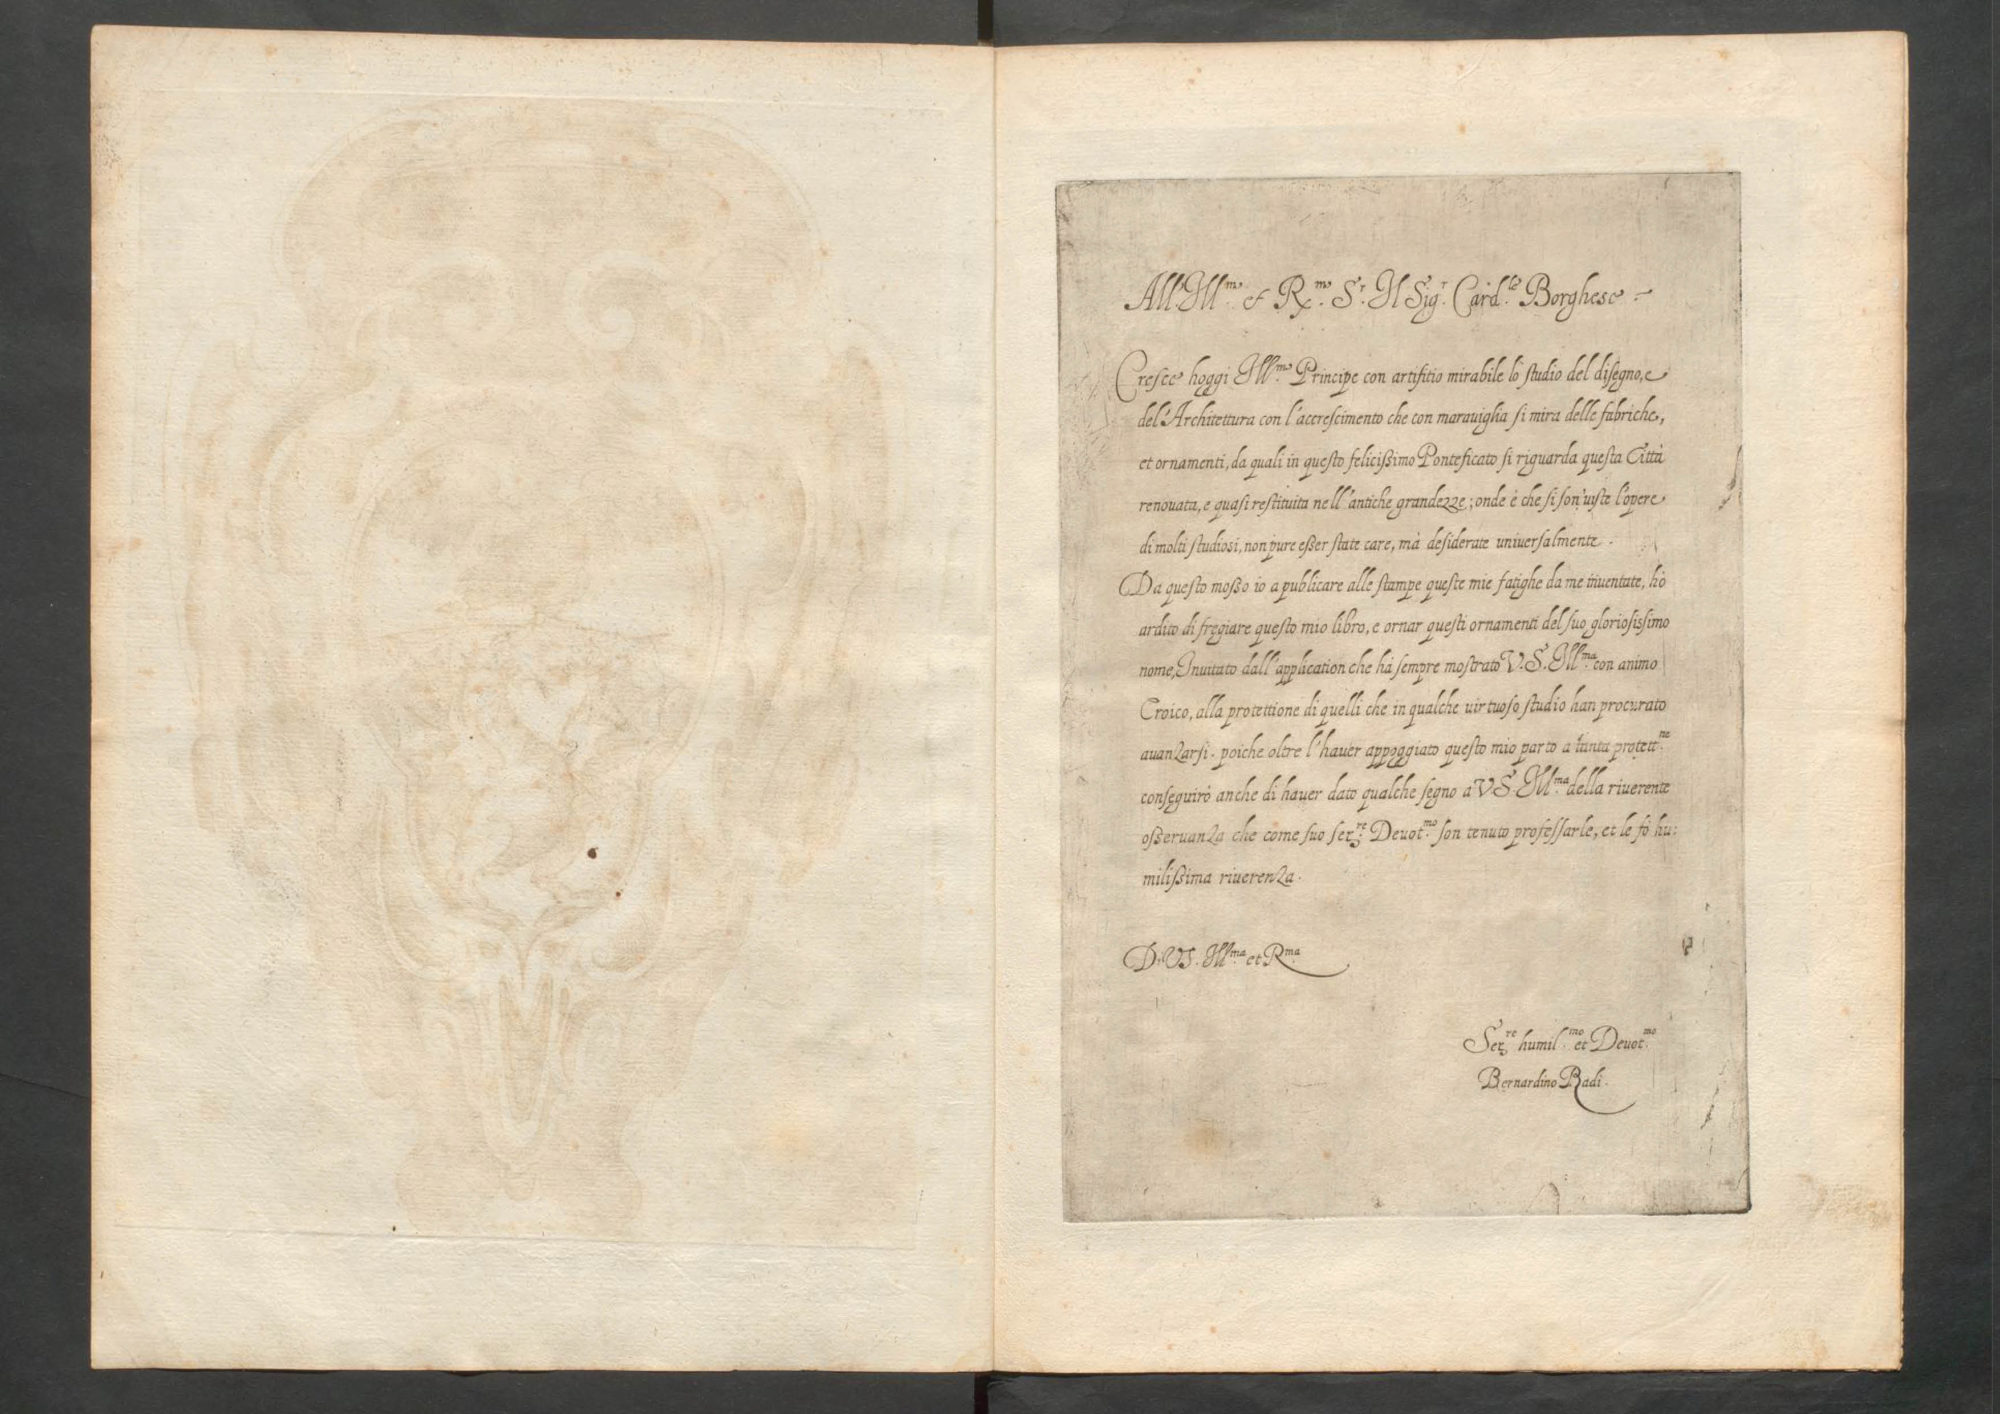 All'Ill.mo et R.mo S.r Il Sig.r Card.le Borghese
Cresce hoggi Ill.mo Principe con artifitio mirabile lo studio del disegno, e
del'Architettura con l'accrescimento che con marauiglia si mira delle fabriche,
et ornamenti, da quali in questo felicißimo Pontificato si riguarda questa Città
renouata, e quasi restituita nell'antiche grandezze; onde è che si son'uiste l'opere
di molti studiosi, non pure eßer state care, mà desiderate uniuersalmente.
Da questo moßo io a publicare alle stampe queste mie fatighe da me inuentate, hò
ardito di fregiare questo mio libro, e ornar questi ornamenti del suo gloriosissimo
nome, Inuitato dall'application che hà sempre mostrato V.S. Ill.ma con animo
Eroico, alla protettione di quelli che in qualche uirtuoso studio han procurato
auanzarsi. poiche oltre l'hauer appoggiato questo mio parto a tanta protett.ne
conseguirò anche di hauer dato qualche segno a VS. Ill.ma della riuerente
oßeruanza che come suo ser.re Deuot.mo son tenuto professarle, et le fò hu:
milißima riuerenza.
D. VS. Ill.ma et R.ma
Ser.re humil.mo et Deuot.mo
Bernardino Radi.